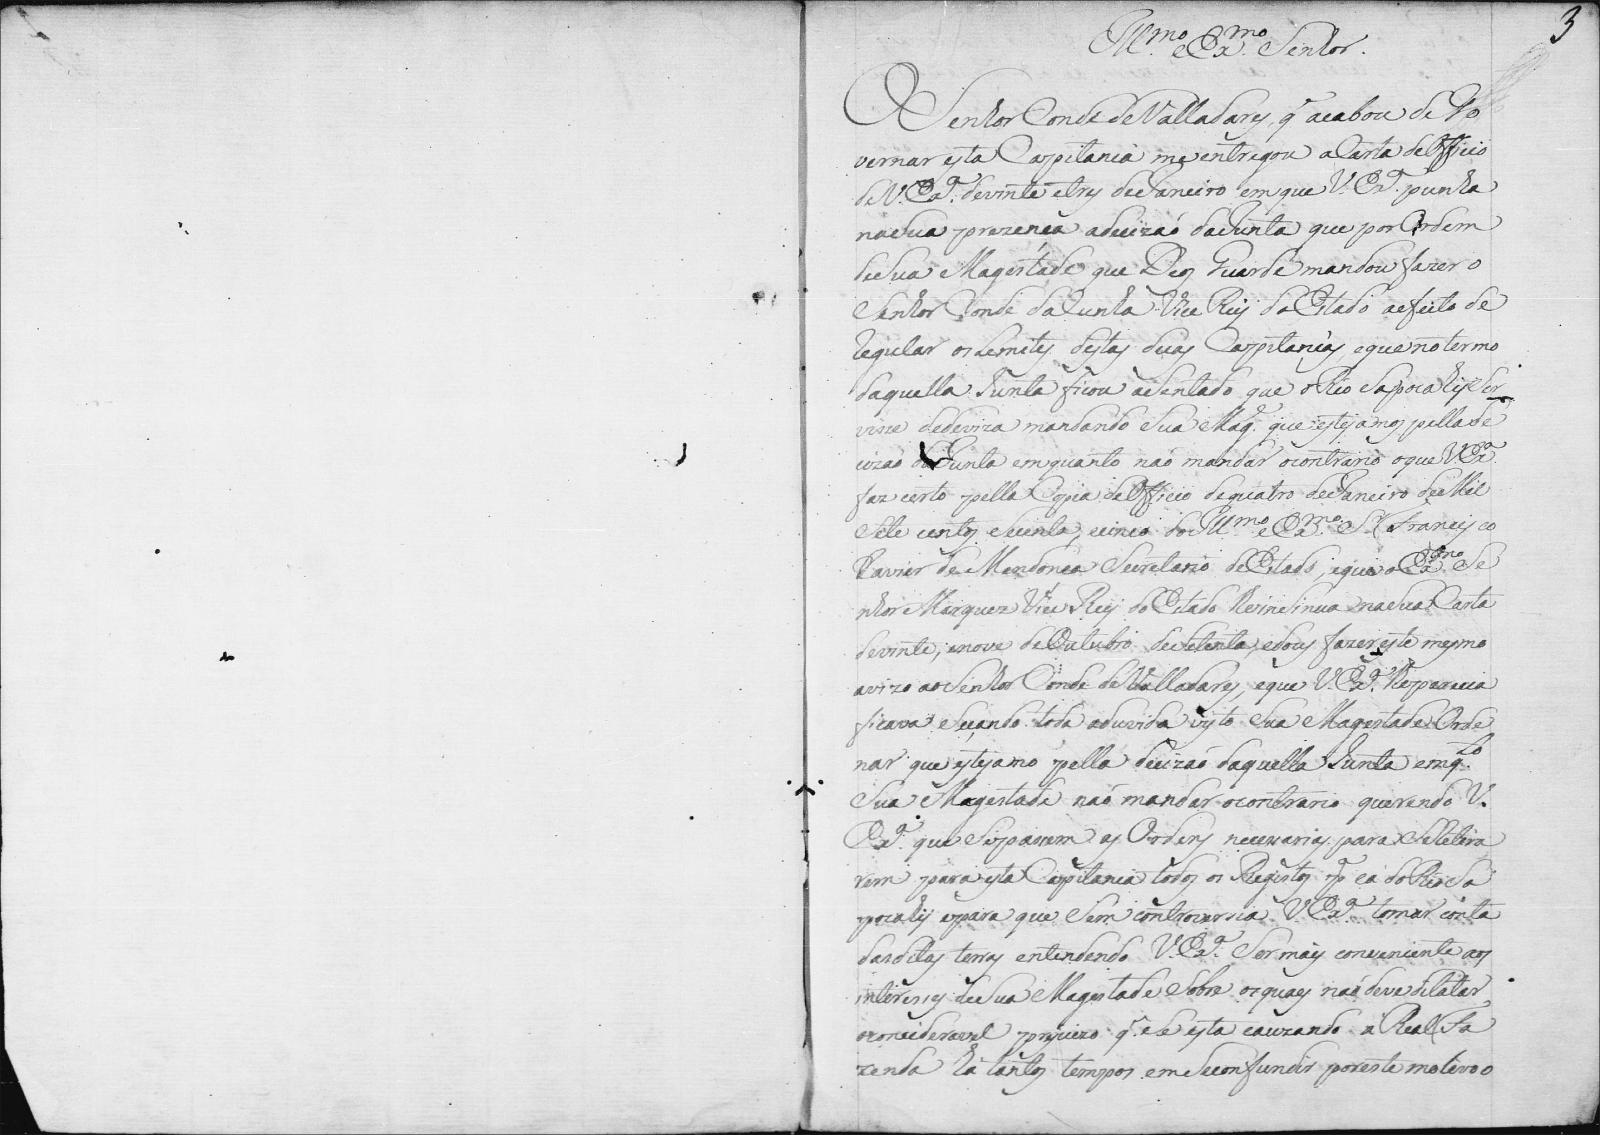 3
Ill.mo e Ex.mo Senhor.
O Senhor Conde de Valladares, q̃ acabou de Go
vernar esta Capitania me entregou a Carta de Officio
de V. Ex.ª de vinte e tres de Janeiro em que V. Ex.ª punha
na sua prezença a decizaõ da Junta que por Ordem
de Sua Magestade que Deos Guarde mandou fazer o
Senhor Conde da Cunha Vice Rey do Estado a efeito de
regular os Lemites destas duas Capitanias, e que no termo
daquella Junta ficou asentado que o Rio Sapocahy Ser
visse de deviza mandando Sua Mag.e que estejamos pella de
cizaõ da Junta emquanto naõ mandar o contrario o que V. Ex.ª
faz certo pella Copia de Officio de quatro de Janeiro de Mil
Sete centos e Secenta, e cinco do Ill.mo e Ex.mo S.r Francisco
Xavier de Mendonça Secretario de Estado, e que o Ex.mo Se
nhor Marquez Vice Rey do Estado lhe insinua na sua Carta
de vinte, e nove de Outubro de setenta, e dous fazer este mesmo
avizo ao Senhor Conde de Valladares, e que V. Ex.ª lhe parecia
ficava cesando toda a duvida visto Sua Magestade Orde
nar que estejamo pella decizaõ daquella Junta emq.to
Sua Magestade naõ mandar o contrario querendo V.
Ex.ª que Se pasem as Ordens necessarias para Se retira
rem para esta Capitania todos os Registos q̃ ha do Rio Sa
pocahy e para que Sem controversia V. Ex.ª tomar conta
das ditas terras entendendo V. Ex.ª Ser mais conveniente aos
interesses de Sua Magestade Sobre os quaes naõ deve dilatar
o concideravel prejuizo q̃ se esta cauzando a Real Fa
zenda ha tantos tempos em Se confundir por este motivo o